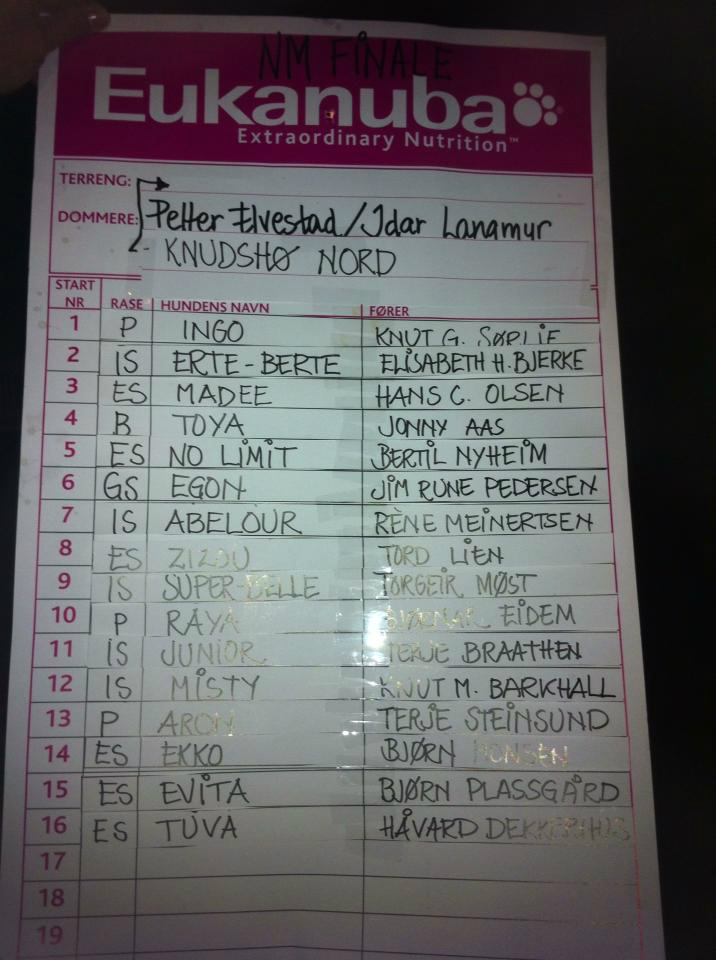 NM FINALE
Eukanuba
Extraordinary Nutrition™
TERRENG:
DOMMERE: Petter Elvestad/Idar Lanamur
KNUDSHØ NORD
START NR RASE HUNDENS NAVN FØRER
1 P INGO KNUT G. SØRLIE
2 IS ERTE-BERTE ELISABETH H. BJERKE
3 ES MADEE HANS C. OLSEN
4 B TOYA JONNY AAS
5 ES NO LIMIT BERTIL NYHEIM
6 GS EGON JIM RUNE PEDERSEN
7 IS ABELOUR RÈNE MEINERTSEN
8 ES ZIZOU TORD LIEN
9 IS SUPER-BELLE TORGEIR MØST
10 P RAYA BJØRNAR EIDEM
11 IS JUNIOR TERJE BRAATHEN
12 IS MISTY KNUT M. BARKHALL
13 P ARON TERJE STEINSUND
14 ES EKKO BJØRN
15 ES EVITA BJØRN PLASSGÅRD
16 ES TUVA HÅVARD DEKKERHUS
17
18
19